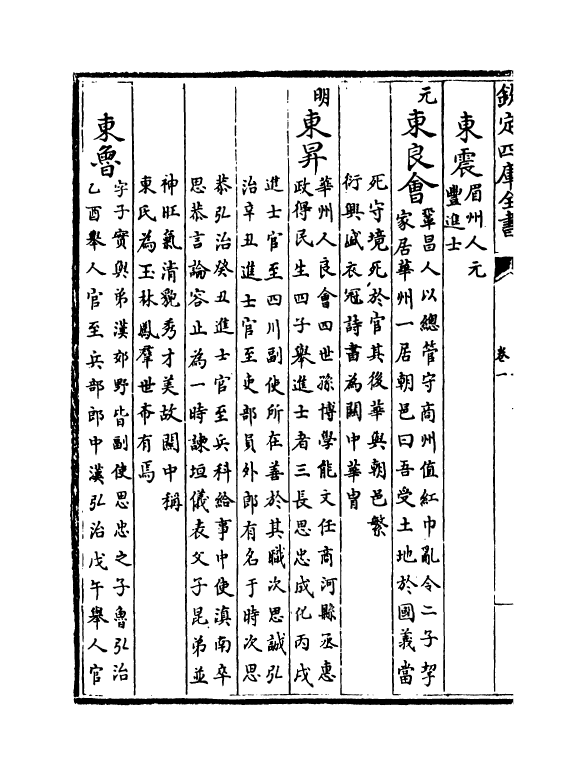 欽定四庫全書 卷一
東震 眉州人元
豐進士
元 東良會 鞏昌人以總管守商州值紅巾亂令二子挈
家居華州一居朝邑曰吾受土地於國義當
死守境死於官其後華與朝邑繁
衍興盛衣冠詩書為關中華胄
明 東昇 華州人良會四世孫博學能文任商河縣丞惠
政得民生四子舉進士者三長思忠成化丙戌
進士官至四川副使所在善於其職次思誠弘
治辛丑進士官至吏部員外郎有名于時次思
恭弘治癸丑進士官至兵科給事中使滇南卒
思恭言論容止為一時諫垣儀表父子昆弟並
神旺氣清貌秀才美故關中稱
東氏為玉林鳳羣世希有焉
東魯 字子實與弟漢郊野皆副使思忠之子魯弘治
乙酉舉人官至兵部郎中漢弘治戊午舉人官